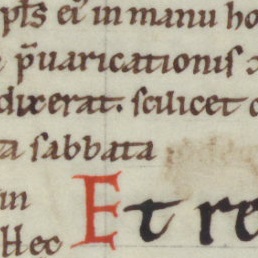 płs eiꝰ in manu ho
p̄uaricationis ɔ
dixerat. scilicet
ta sabbata
in
Et re
Hec